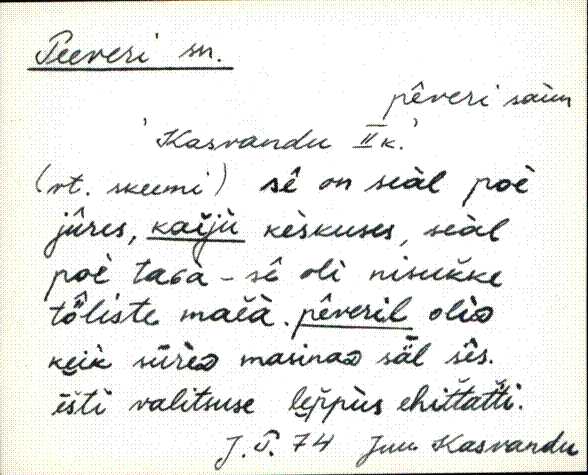 Peeveri sn.
pêveri sàun
'Kasvandu II k.'
(vt. skeemi) sê on seàl poè
jûres, kaĭjù kèskuses, seàl
poè taGà - sê oli nisukke
tö̂liste maĭà. pêveril oliD
keik sūrèD masinaD säl sês.
ēšti valitsuse lep̆pùs ehit̆tat̆ti.
J. J. 74 Juu Kasvandu